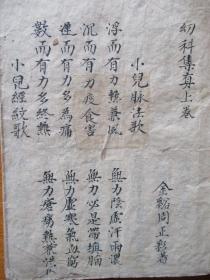 幼科集真上卷
金谿周正
小兒脉法歌
浮而有力熱兼風
無力陰虛汗雨濃
沉而有力痰食害
無力必是滯胸
遲而有力多為痛
無力虛寒氣血窮
數而有力多終熱
無力瘡瘍熱兼
小兒經紋歌